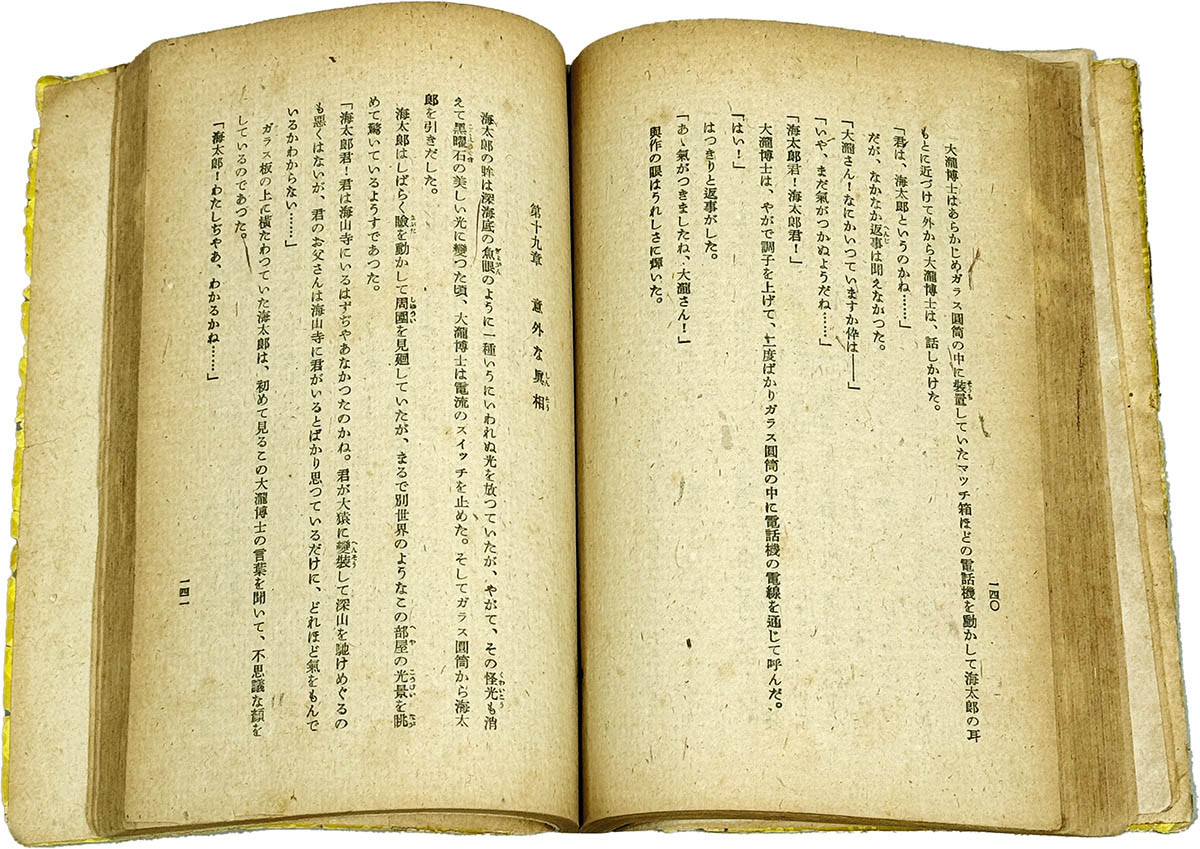 大瀧博士はあらかじめガラス圓筒の中に裝置していたマッチ箱ほどの電話機を動かして海太郎の耳
もとに近づけて外から大瀧博士は、話しかけた。
「君は、海太郎というのかね……」
だが、なかなか返事は聞えなかつた。
「大瀧さん！なにかいつていますか伜は――」
「いや、まだ氣がつかぬようだね……」
「海太郎君！海太郎君！」
大瀧博士は、やがで調子を上げて、二度ばかりガラス圓筒の中に電話機の電線を通じて呼んだ。
「はい！」
はつきりと返事がした。
「あゝ氣がつきましたね、大瀧さん！」
與作の眼はうれしさに輝いた。
一四〇
第十九章　意外な眞相
海太郎の眸は深海底の魚眼のように一種いうにいわれぬ光を放つていたが、やがて、その怪光も消
えて黑曜石の美しい光に變つた頃、大瀧博士は電流のスイッチを止めた。そしてガラス圓筒から海太
郎を引きだした。
海太郎はしばらく瞼を動かして周圍を見廻していたが、まるで別世界のようなこの部屋の光景を眺
めて驚いているようすであつた。
「海太郎君！君は海山寺にいるはずぢやあなかつたのかね。君が大猿に變裝して深山を馳けめぐるの
も惡くはないが、君のお父さんは海山寺に君がいるとばかり思つているだけに、どれほど氣をもんで
いるかわからない……」
ガラス板の上に横たわつていた海太郎は、初めて見るこの大瀧博士の言葉を聞いて、不思議な顏を
しているのであつた。
「海太郎！わたしぢやあ、わかるかね……」
一四一